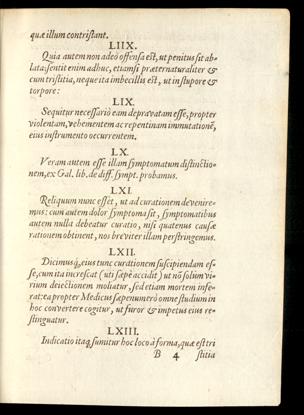 quæ illum contristant.
LIIX.
Quia autem non adeò offensa est, ut penitus sit ab-
lata: sentit enim adhuc, etiamsi præternaturaliter &
cum tristitia, neque ita imbecillis est, ut in stupore &
torpore:
LIX.
Sequitur necessariò eam depravatam esse, propter
violentam, vehementem ac repentinam immutationẽ,
eius instrumento occurrentem.
LX.
Veram autem esse illam symptomatum distinctio-
nem, ex Gal. lib. de diff. sympt. probamus.
LXI.
Reliquum nunc esset, ut ad curationem devenire-
mus: cum autem dolor symptoma sit, symptomatibus
autem nulla debeatur curatio, nisi quatenus causæ
rationem obtinent, nos breviter illam perstringemus.
LXII.
Dicimusq́, eius tunc curationem suscipiendam es-
se, cum ita increscat (uti sæpè accidit) ut nõ solum vi-
rium deiectionem moliatur, sed etiam mortem infe-
rat: ea propter Medicus sæpenumerò omne studium in
hoc convertere cogitur, ut furor & impetus eius re-
stinguatur.
LXIII.
Indicatio itaq́ sumitur hoc loco à forma, quæ est tri
B 4 stitia